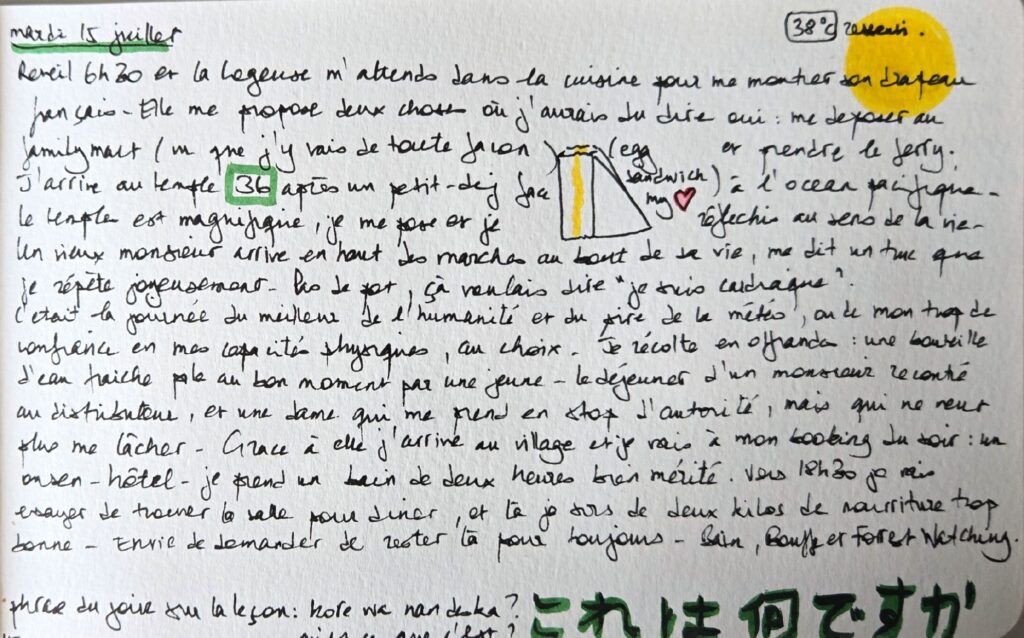 mardi 15 juillet
38°c ressenti.
Reveil 6h30 et la logeuse m'attends dans la cuisine pour me montrer son drapeau
français - Elle me propose deux choses où j'aurais du dire oui : me déposer au
familymart (vu que j'y vais de toute facon (egg sandwich my ) et prendre le ferry.
J'arrive au temple 36 après un petit-dej face à l'ocean pacifique -
le temple est magnifique, je me pose et je réflechis au sens de la vie -
Un vieux monsieur arrive en haut des marches au bout de sa vie, me dit un truc que
je répète joyeusement - Pas de pot, çà voulais dire "je suis cardiaque".
C'etait la journée du meilleur de l'humanité et du pire de la météo, ou de mon trop de
confiance en mes capacités physiques, au choix. Je récolte en offrande : une bouteille
d'eau fraiche pile au bon moment par une jeune - le déjeuner d'un monsieur recontré
au distributeur, et une dame qui me prend en stop d'autorité, mais qui ne veut
plus me lâcher - Grace à elle j'arrive au village et je vais à mon booking du soir : un
onsen - hôtel - je prend un bain de deux heures bien mérité. Vers 18h30 je vais
essayer de trouver la salle pour diner, et là je sors de deux kilos de nourriture trop
bonne - Envie de demander de rester là pour toujours - Bain, Bouffe et Forest Watching.
phrase du jour sur la leçon : kore wa nan deska ? これは何ですか
qu'est ce que c'est ?